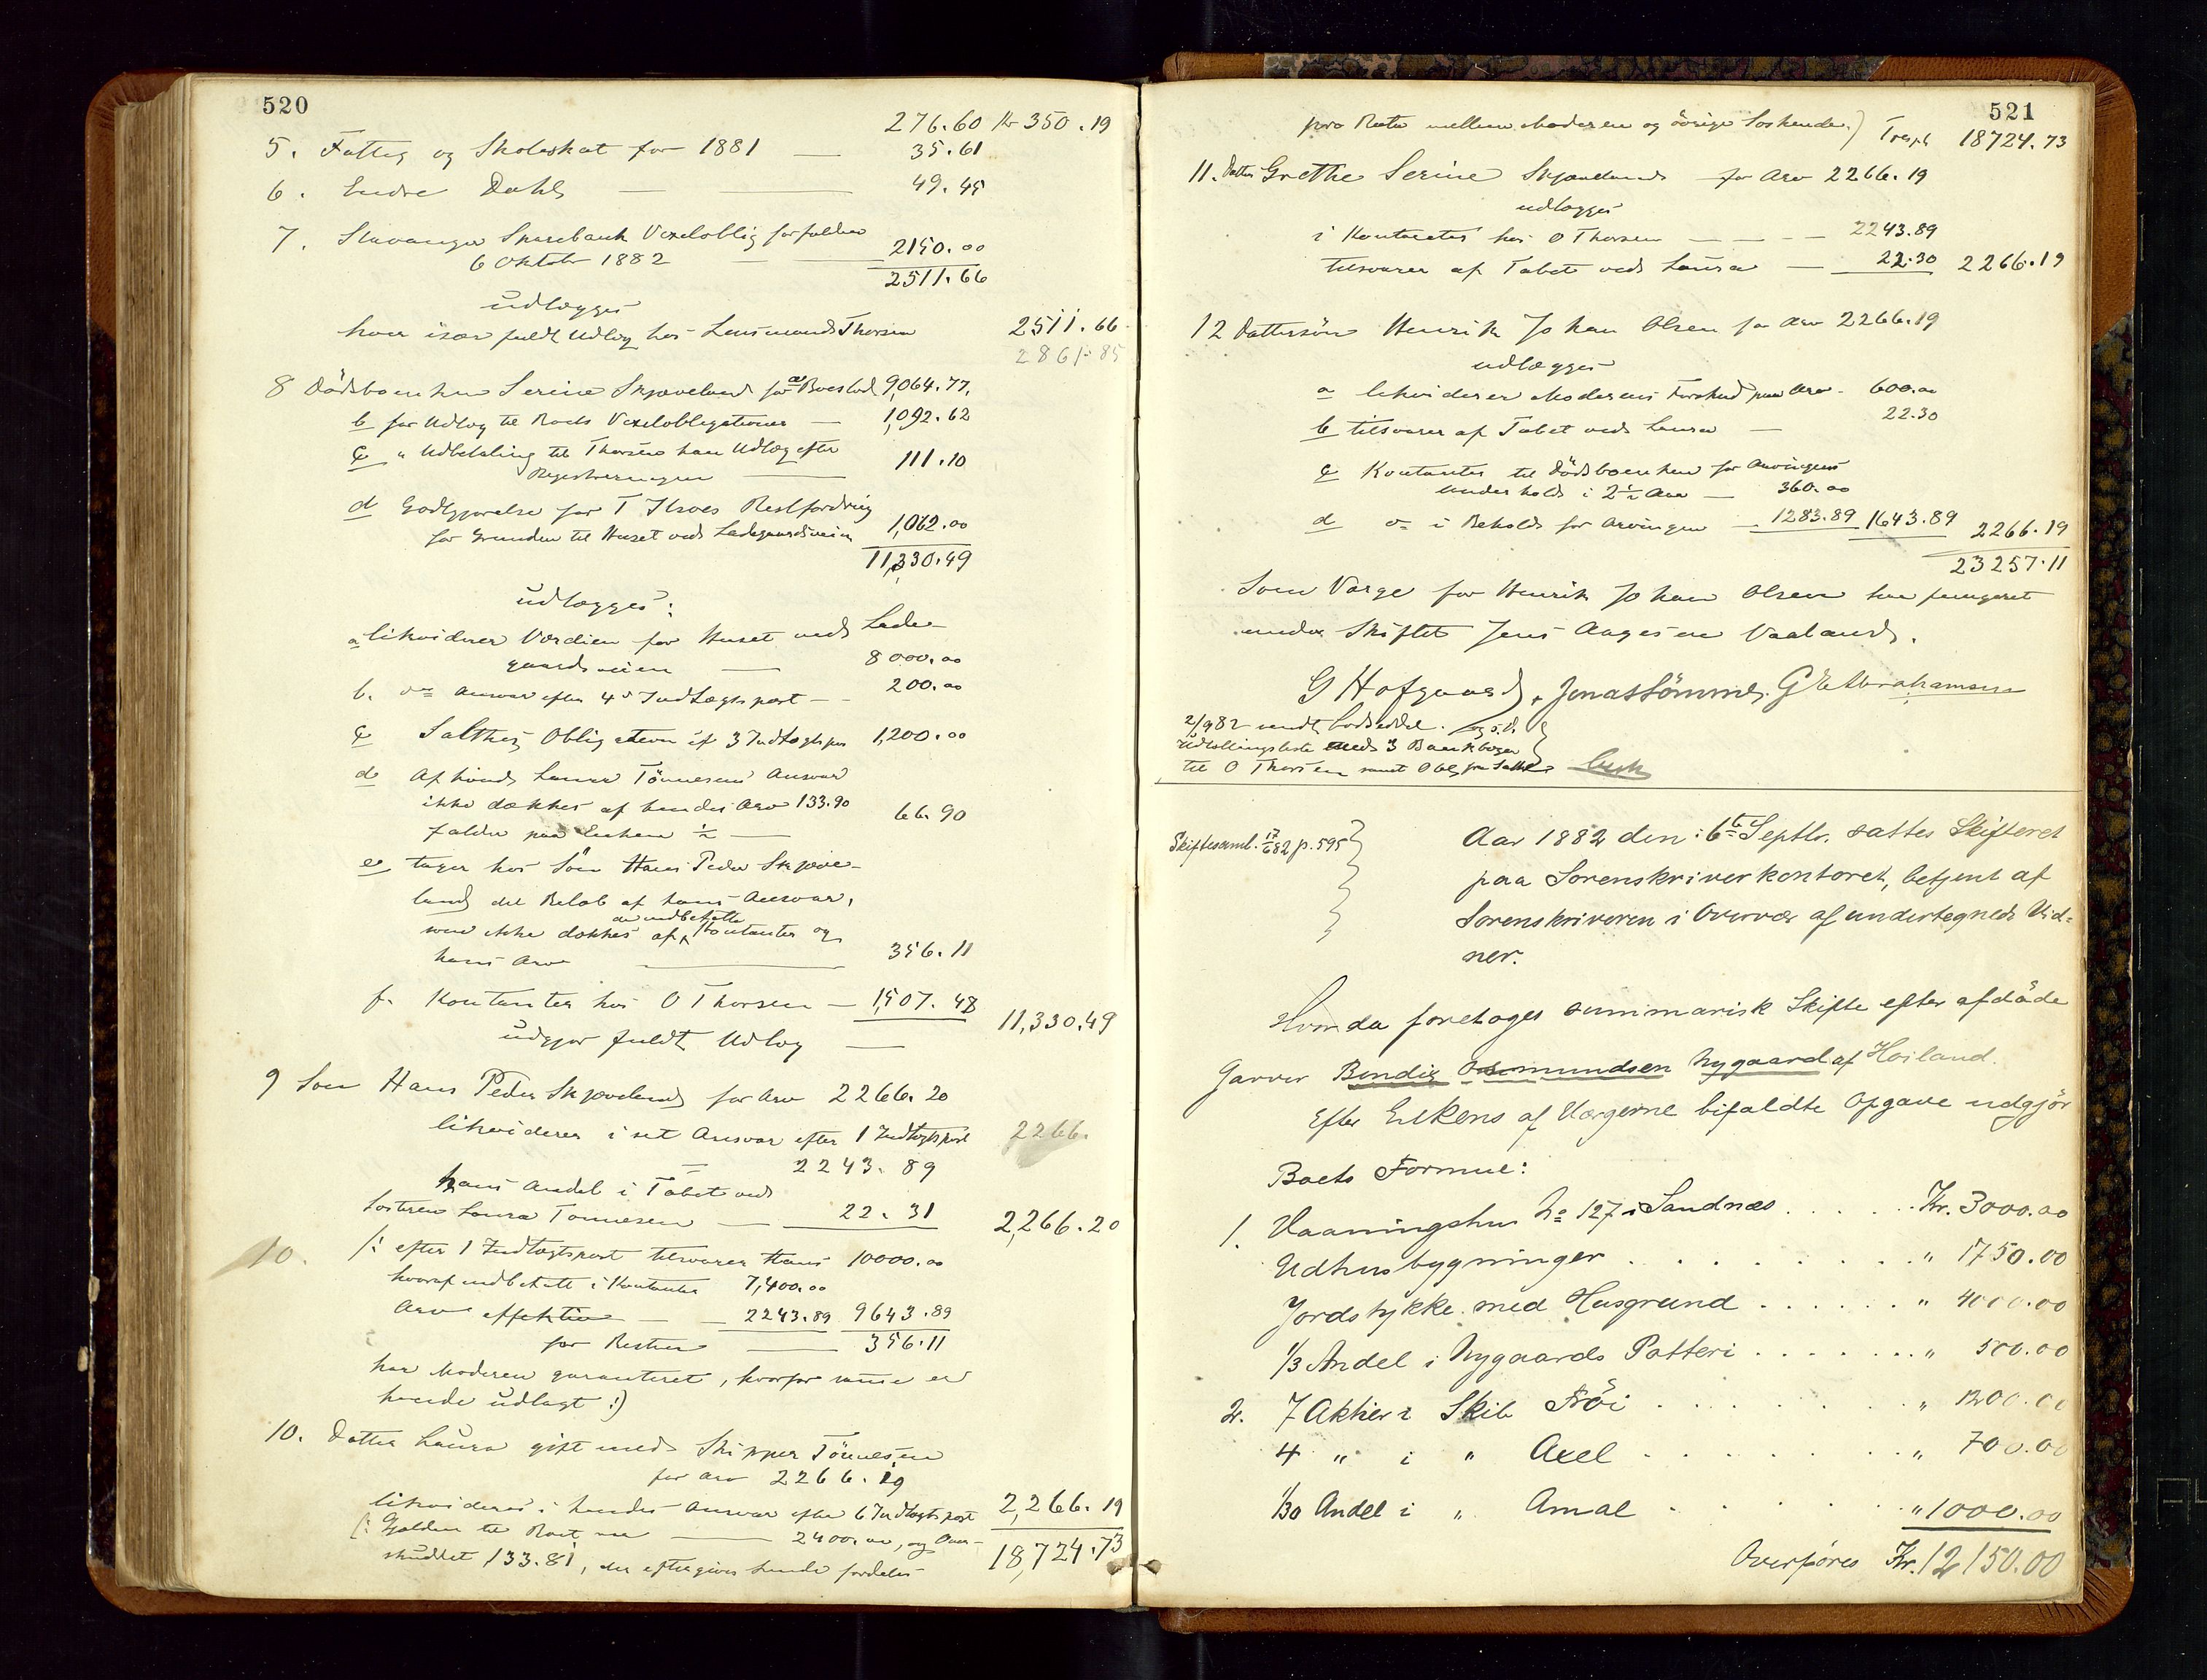 520
276.60 Kr 350.19
5. Fattig og Skoleskat for 1881 — 35.61
6. Endre Dahl — 49.45
7. Stavanger Sparebank Vexeloblig forfalden
6 Oktober 1882 — 2150.00
2511.66
udlægges
hver især fuldt Udlæg hos Lensmand Thorsen 2511.66
2861.85
8 Dödsboenken Serine Skjæveland for a Boeslod 9,064.77,
b for Udlæg til Boets Vexelobligationer — 1,092.62
c " Udbetaling til Thorsens han Udlæg efter
Registreringen — 111.10
d Godtgjørelse for T Ilsøes Restfordring
for Grunden til Huset ved Ladegaardsveien 1,062.00
11,330.49
udlægges:
a likviderer Værdien for Huset ved Lade-
gaardsveien — 8000.00
b. do Ansvar efter 4de Indtægtspost — 200.00
c Salthes Obligation if 3 Indtægtspost 1,200.00
d Af hvad Laura Tönnesens Ansvar
ikke dækkes af hendes Arv 133.90
falder paa Enken ½ — 66.90
e tager hos Sön Hans Peder Skjæve-
land det Belöb af hans Ansvar,
som ikke dækkes af de indbetalte Kontanter og
hans Arv — 356.11
f. Kontanter hos O Thorsen — 1,507.48
udgjør fuldt Udlæg — 11,330.49
9 Sön Hans Peder Skjæveland for Arv 2266.20
likviderer i sit Ansvar efter 1 Indtægtspost 2266.
2243.89
hans Andel i Tabet ved
Søsteren Laura Tönnesen — 22.31 2,266.20
10. /: efter 1 Indtægtspost tilsvarer Hans 10000.00
hvoraf indbetalt i Kontanter 7,400.00
Arv effektiv — 2243.89 9643.89
for Resten — 356.11
har Moderen garanteret, hvorfor samme er
hende udlagt :)
10. Datter Laura gift med Skipper Tönnesen
for Arv 2266.19
likvideres i hendes Ansvar efter 6 Indtægtspost 2,266.19
(: Gjælden til Boet var — 2400.00, og Over-
skuddet 133.81, der eftergives hende fordeles 18,724.73
521
pro Rata mellem Moderen og övrige Søskende:) Transp. 18724.73
11. Datter Grethe Serine Skjæveland for Arv 2266.19
udlægges
i Kontanter hos O Thorsen — 2243.89
tilsvarer af Tabet ved Laura — 22.30 2266.19
12 Dattersön Henrik Johan Olsen for Arv 2266.19
udlægges
a likviderer Moderens Forskud paa Arv - 600.00
b tilsvarer af Tabet ved Laura — 22.30
c Kontanter til Dödsboenken for Arvingens
Underhold i 2½ Aar — 360.00
d do i Behold for Arvingen — 1283.89 1643.89 2266.19
23257.11
Som Værge for Henrik Johan Olsen har fungeret
under Skiftet Jens Aagesen Vaaland.
G Hofgaard. Jonas Sömme. G E Abrahamsen
2/9 82 sendt Lodseddel.
Udlodningsliste med 3 Bankbøger
til O Thorsen samt Obl fra Salthe
Skiftesaml. 17/6 82 p. 595
Aar 1882 den 6te Septbr. sattes Skifteret
paa Sorenskriverkontoret, betjent af
Sorenskriveren i Overvær af undertegnede Vid-
ner.
Hvorda foretoges summarisk Skifte efter afdöde
Garver Bendix Osmundsen Nygaard af Höiland.
Efter Enkens af Værgerne bifaldte Opgave udgjör
Boets Formue:
1. Vaaningshus No 127 i Sandnæs . . . . . Kr. 3000.00
Udhusbygninger . . . . . . . . . " 1750.00
Jordstykke med Husgrund . . . . . . " 4000.00
1/3 Andel i Nygaards Potteri . . . . . . . " 500.00
2. 7 Aktier i Skib Fröi . . . . . . . . . " 1200.00
4 " i " Axel . . . . . . . . " 700.00
1/30 Andel i " Amal . . . . . . . " 1000.00
Overföres Kr. 12150.00